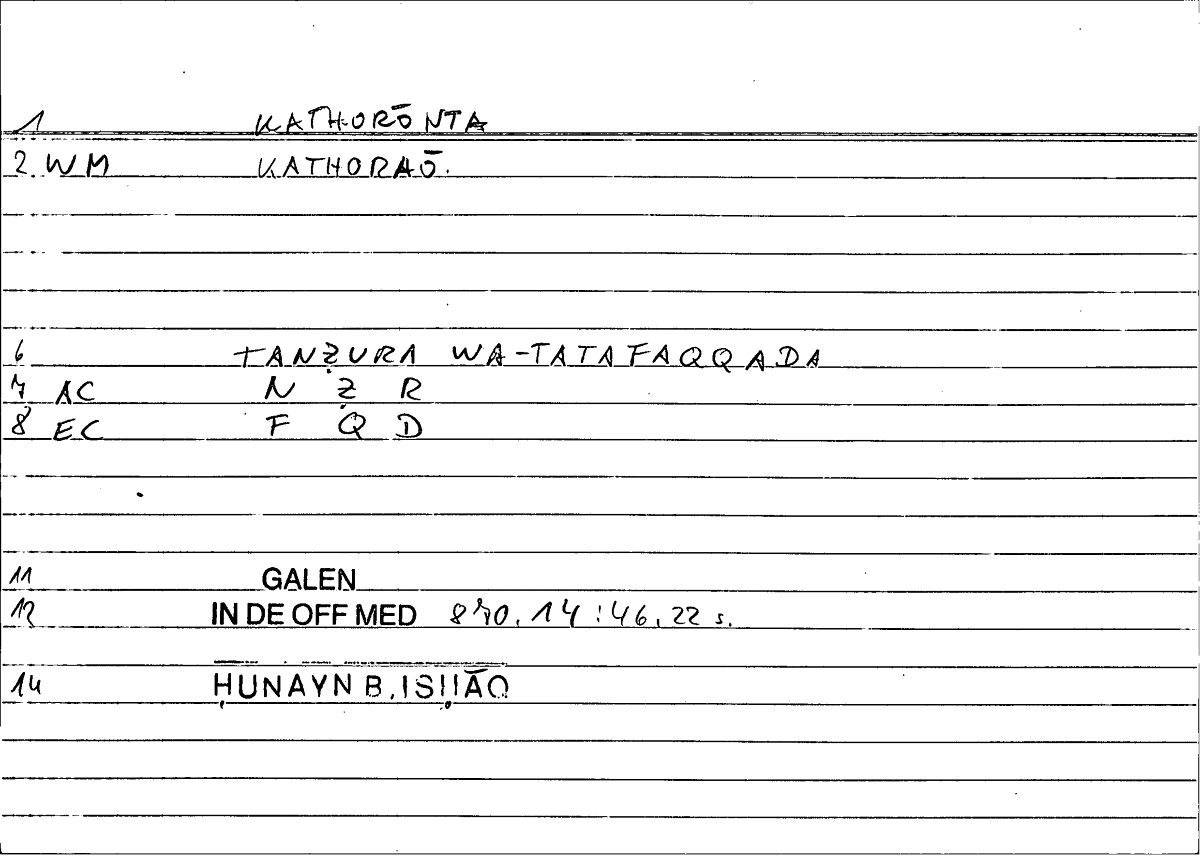 1 KATHORŌNTA
2 WM KATHORAŌ.
6 TANẒURA WA-TATAFAQQADA
7 AC N Ẓ R
8 EC F Q D
11 GALEN
12 IN DE OFF MED 870.14:46.22 s.
14 ḤUNAYN B. ISḤĀQ